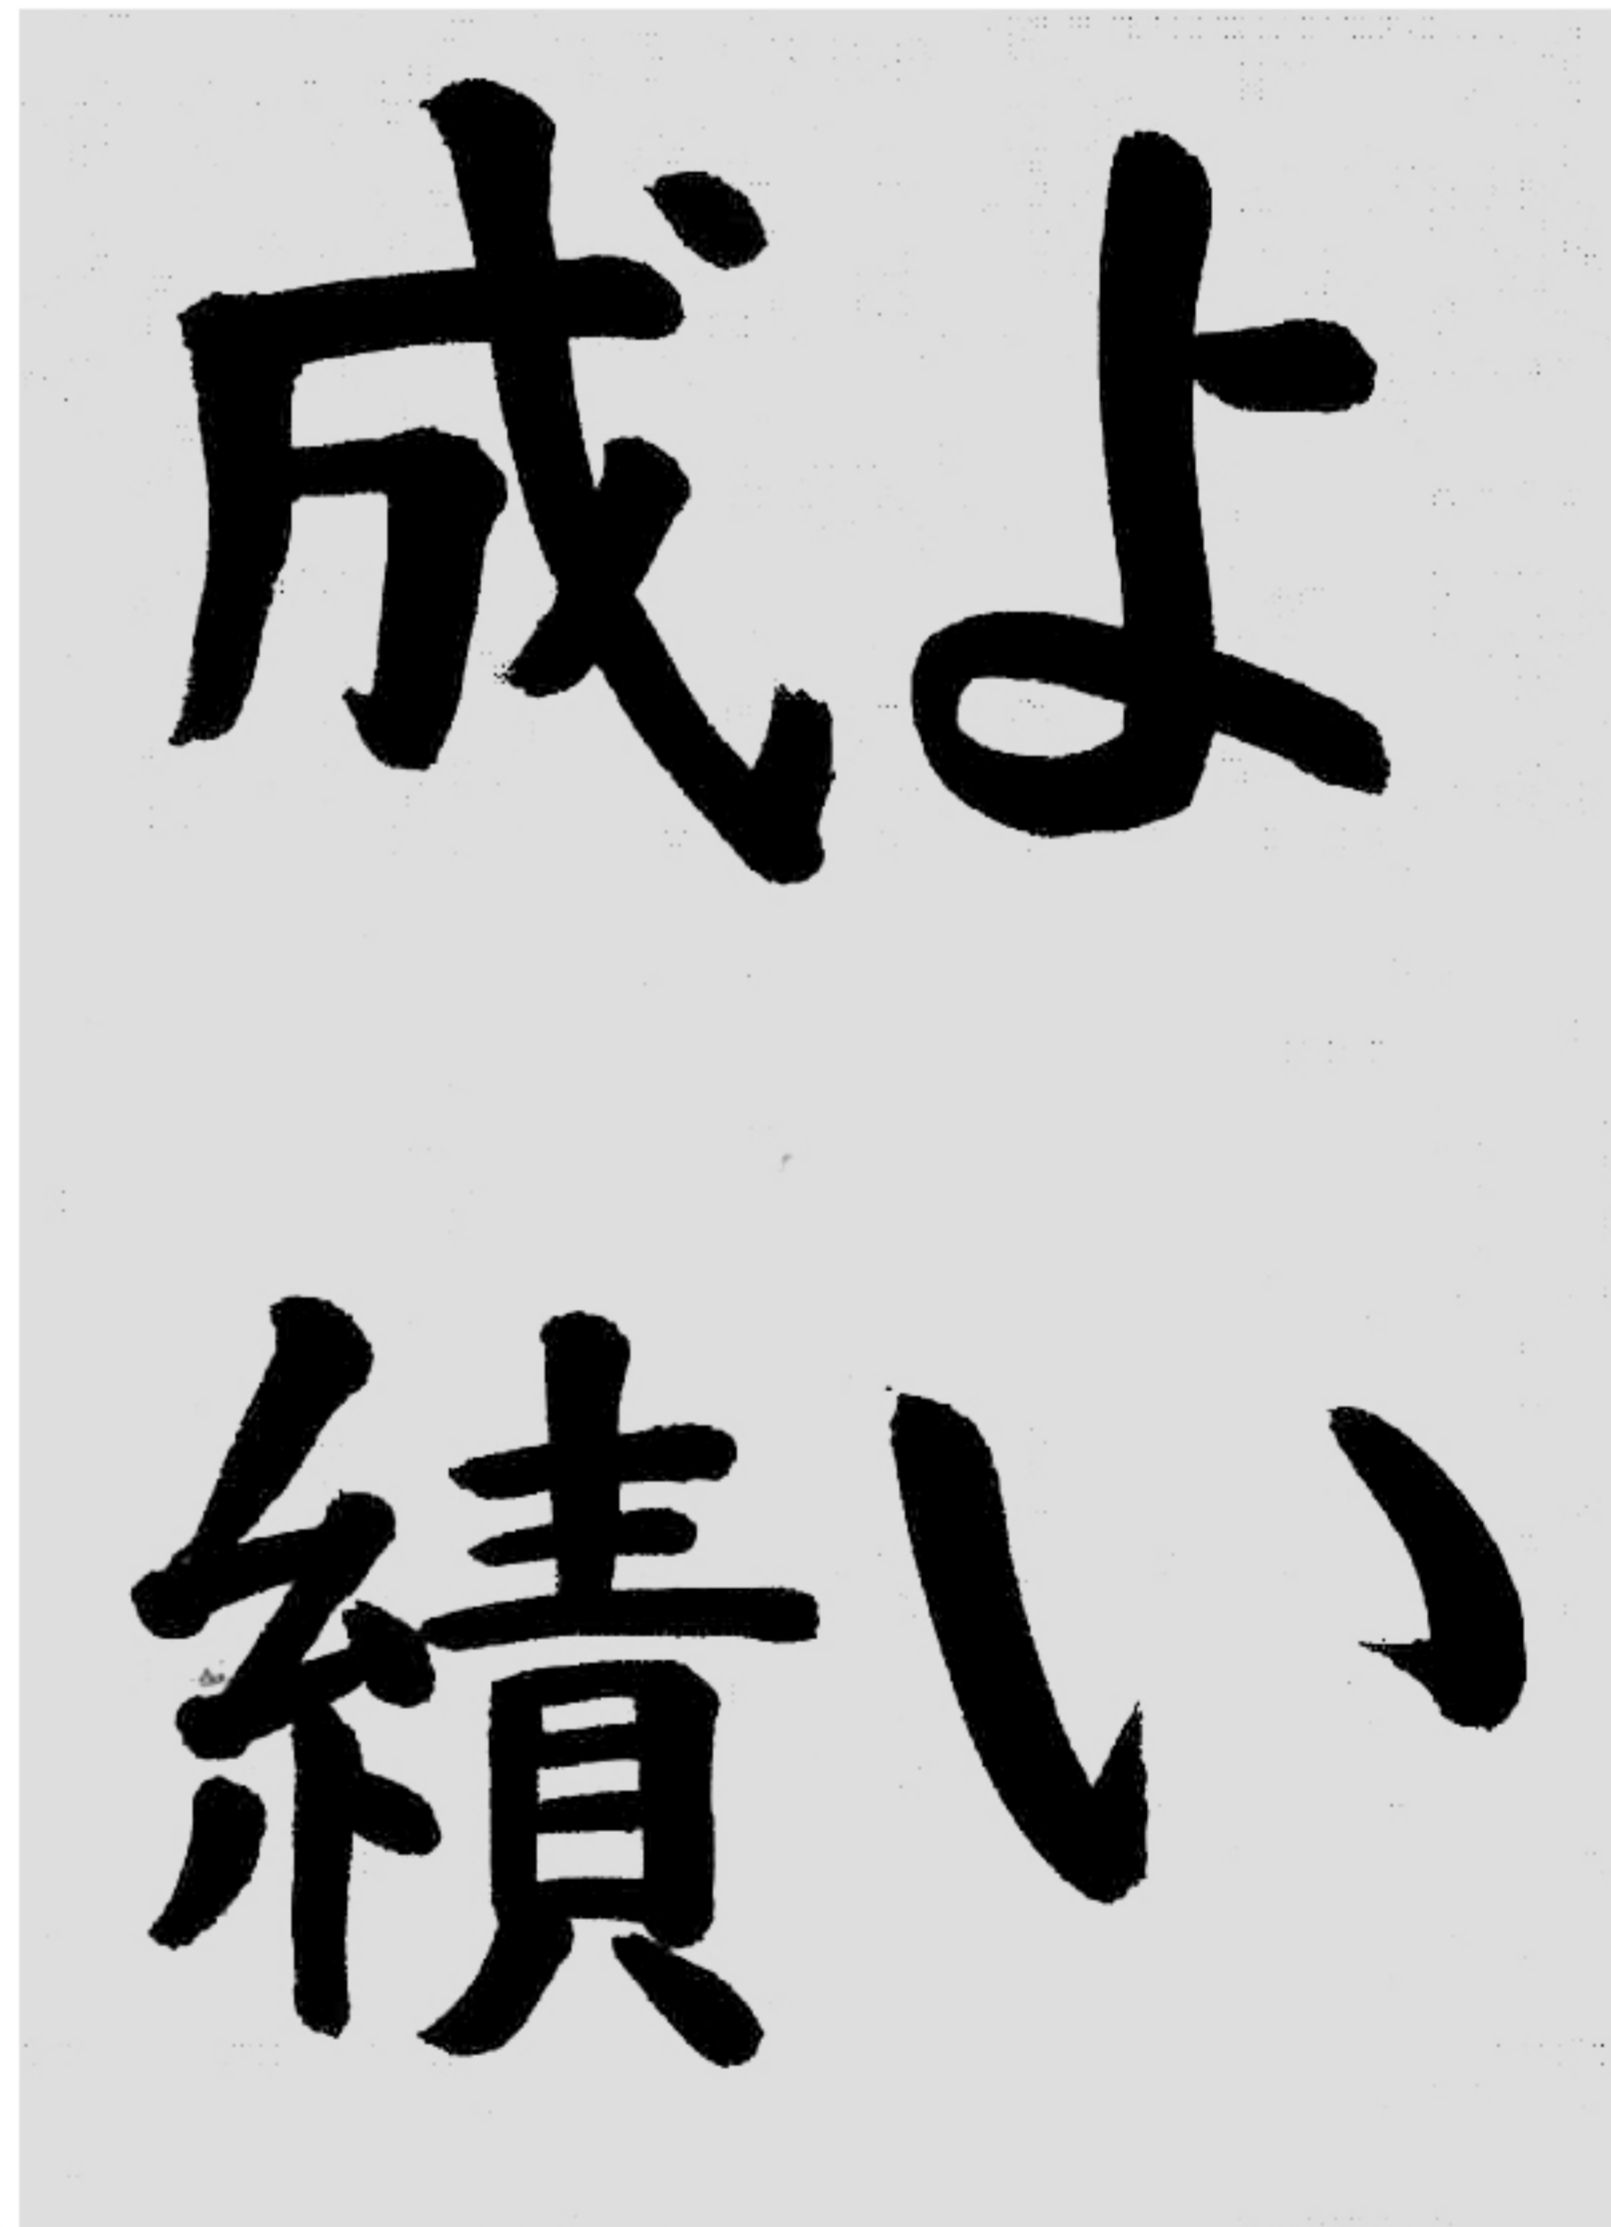 よい
成績